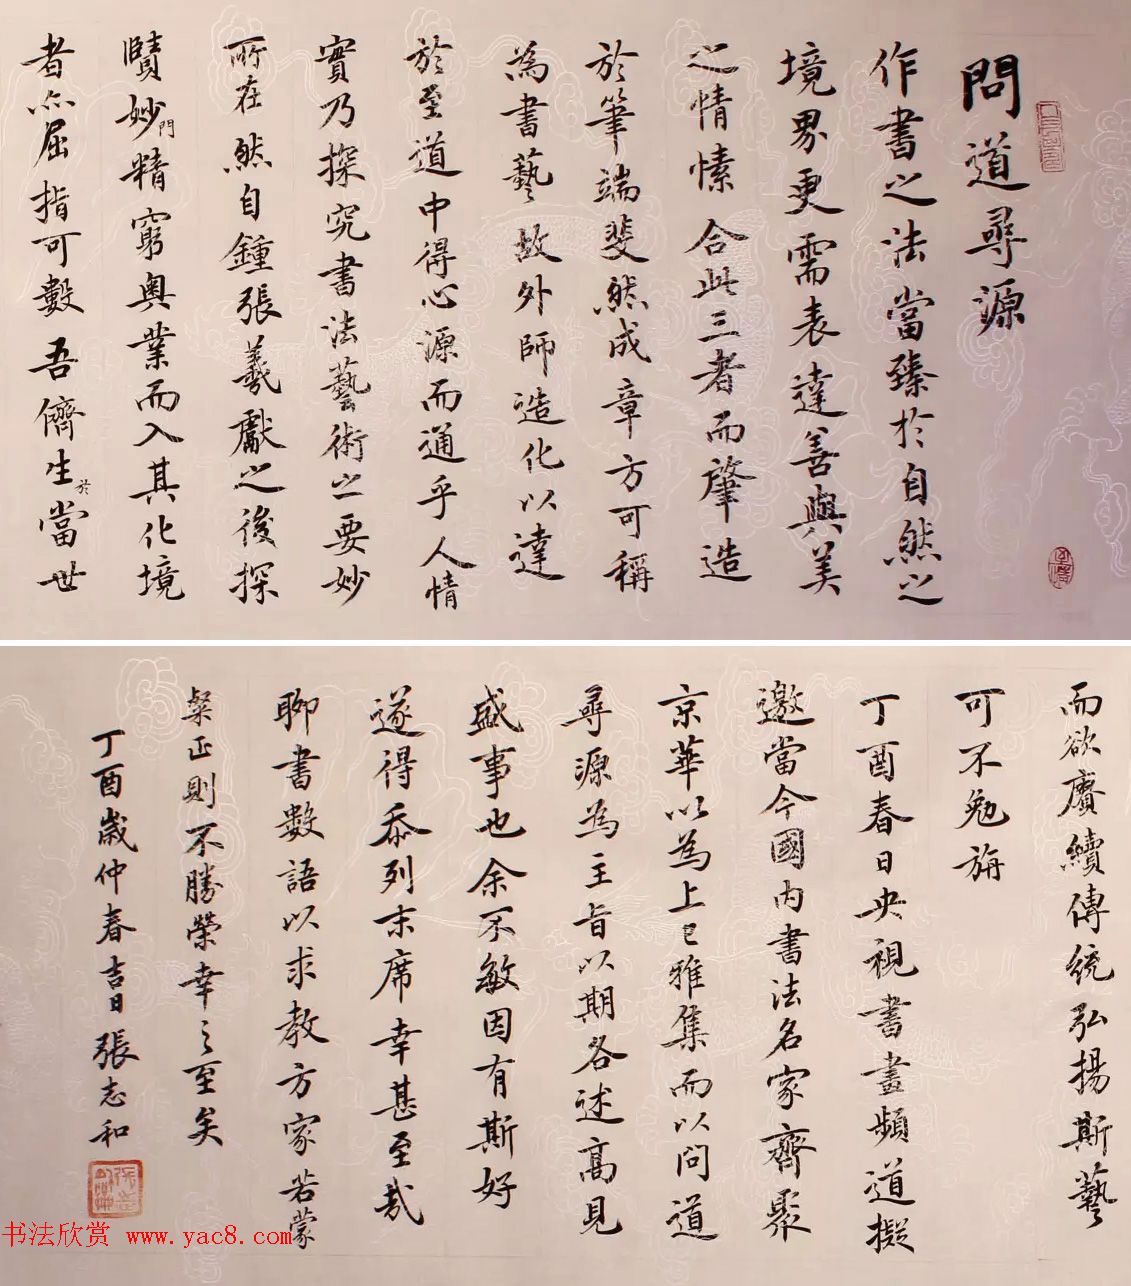 問道尋源
作書之法當臻於自然之
境界更需表達善與美
之情愫合此三者而肇造
於筆端斐然成章方可稱
為書藝故外師造化以達
於至道中得心源而通乎人情
實乃探究書法藝術之要妙
所在然自鍾張羲獻之後探
賾妙門精窮奧業而入其化境
者亦屈指可數吾儕生於當世
而欲賡續傳統弘揚斯藝
可不勉旃
丁酉春日央視書畫頻道擬
邀當今國內書法名家齊聚
京華以為上巳雅集而以問道
尋源為主旨以期各述高見
盛事也余不敏因有斯好
遂得忝列末席幸甚至哉
聊書數語以求教方家若蒙
粲正則不勝榮幸之至矣
丁酉歲仲春吉日張志和
书法欣赏 www.yac8.com